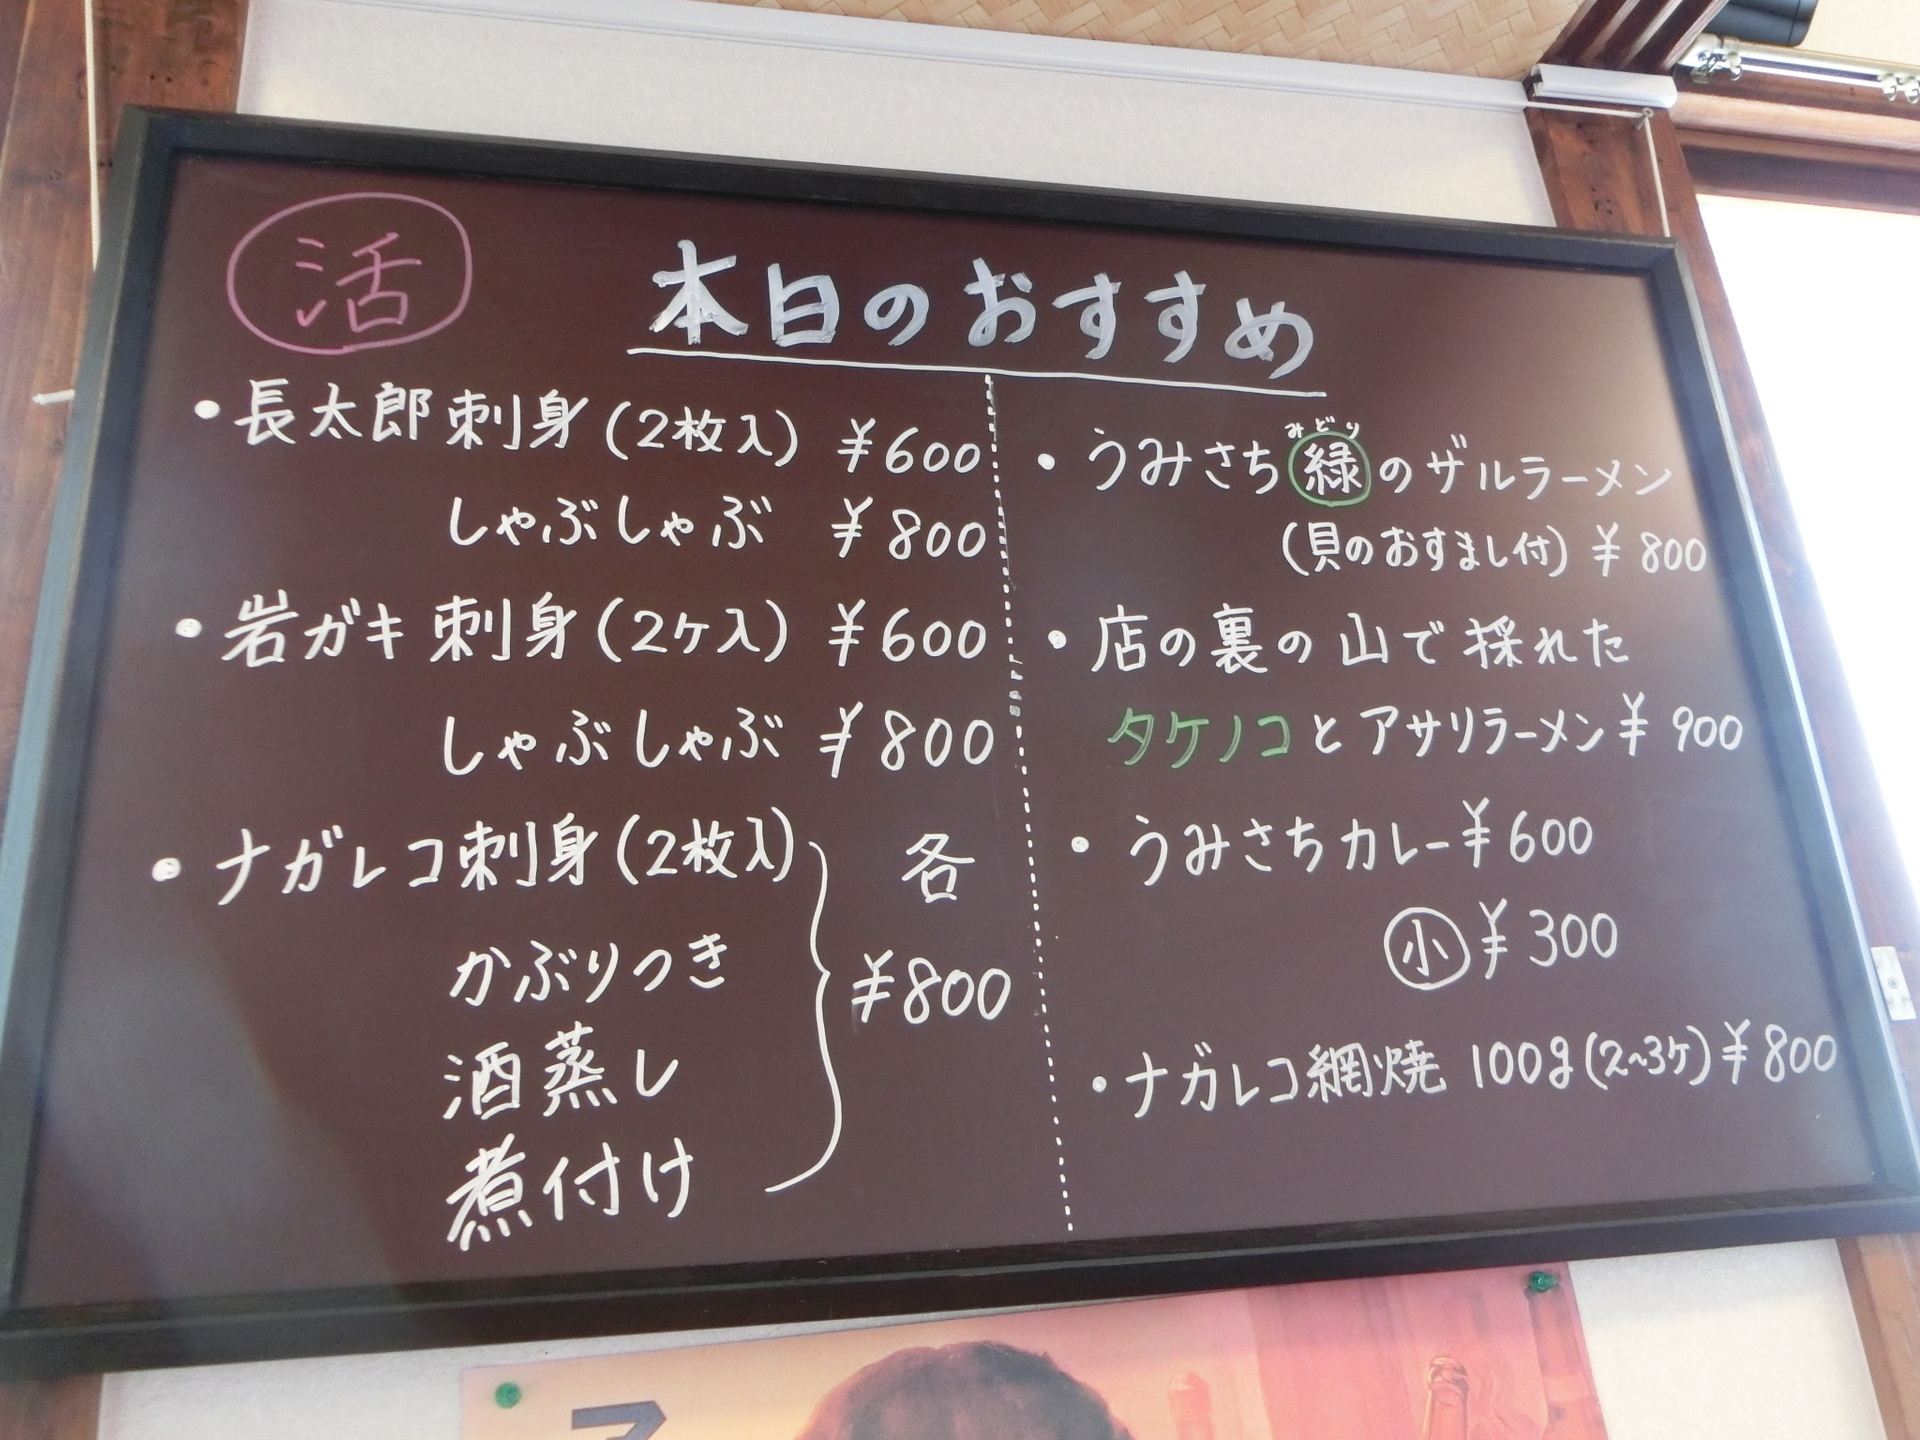 活
本日のおすすめ
・長太郎刺身(2枚入) ¥600
しゃぶしゃぶ ¥800
・岩ガキ刺身(2ケ入) ¥600
しゃぶしゃぶ ¥800
・ナガレコ刺身(2枚入)
かぶりつき
酒蒸し
煮付け
各
¥800
みどり
・うみさち緑のザルラーメン
(貝のおすまし付) ¥800
・店の裏の山で採れた
タケノコとアサリラーメン¥900
・うみさちカレー¥600
小¥300
・ナガレコ網焼 100g(2~3ケ)¥800